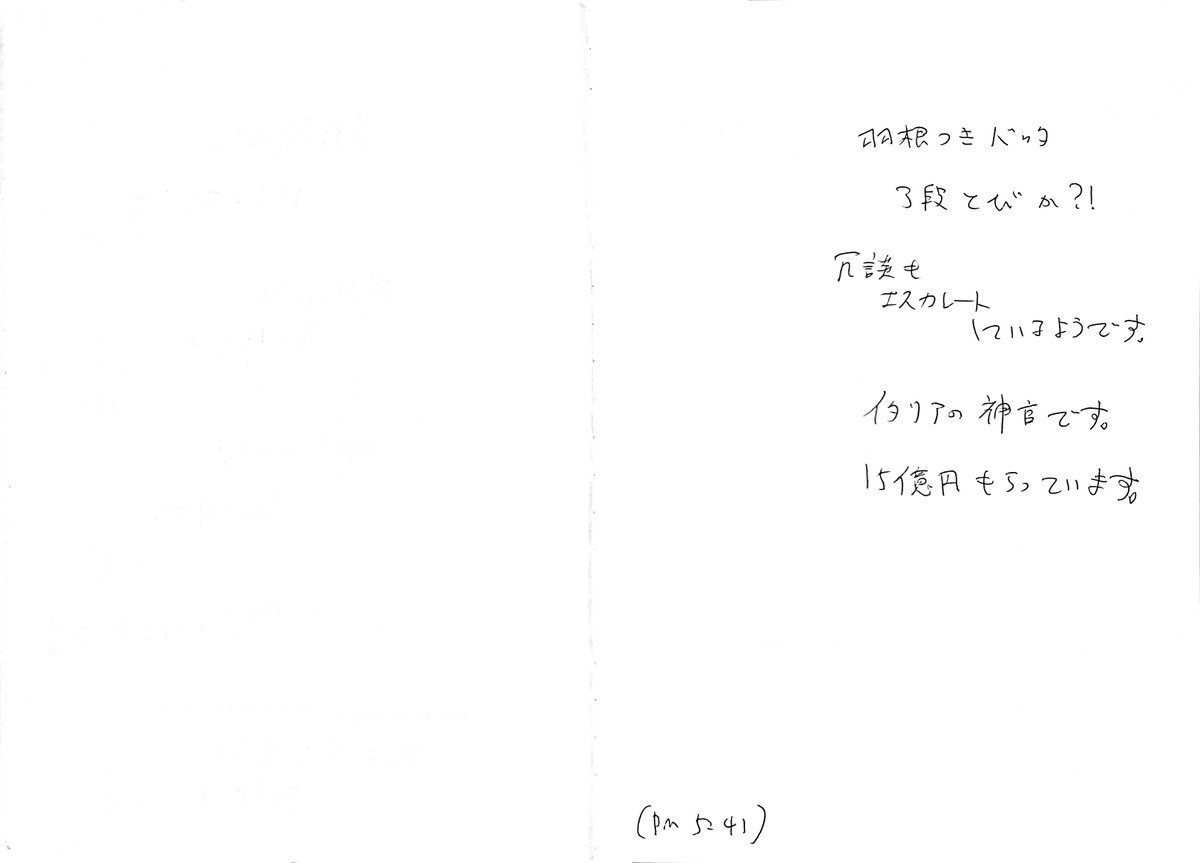 羽根つきバッタ
3段とびか?!
冗談も
エスカレート
しているようです。
イタリアの神官です。
15億円もらっています。
(pm 5:41)